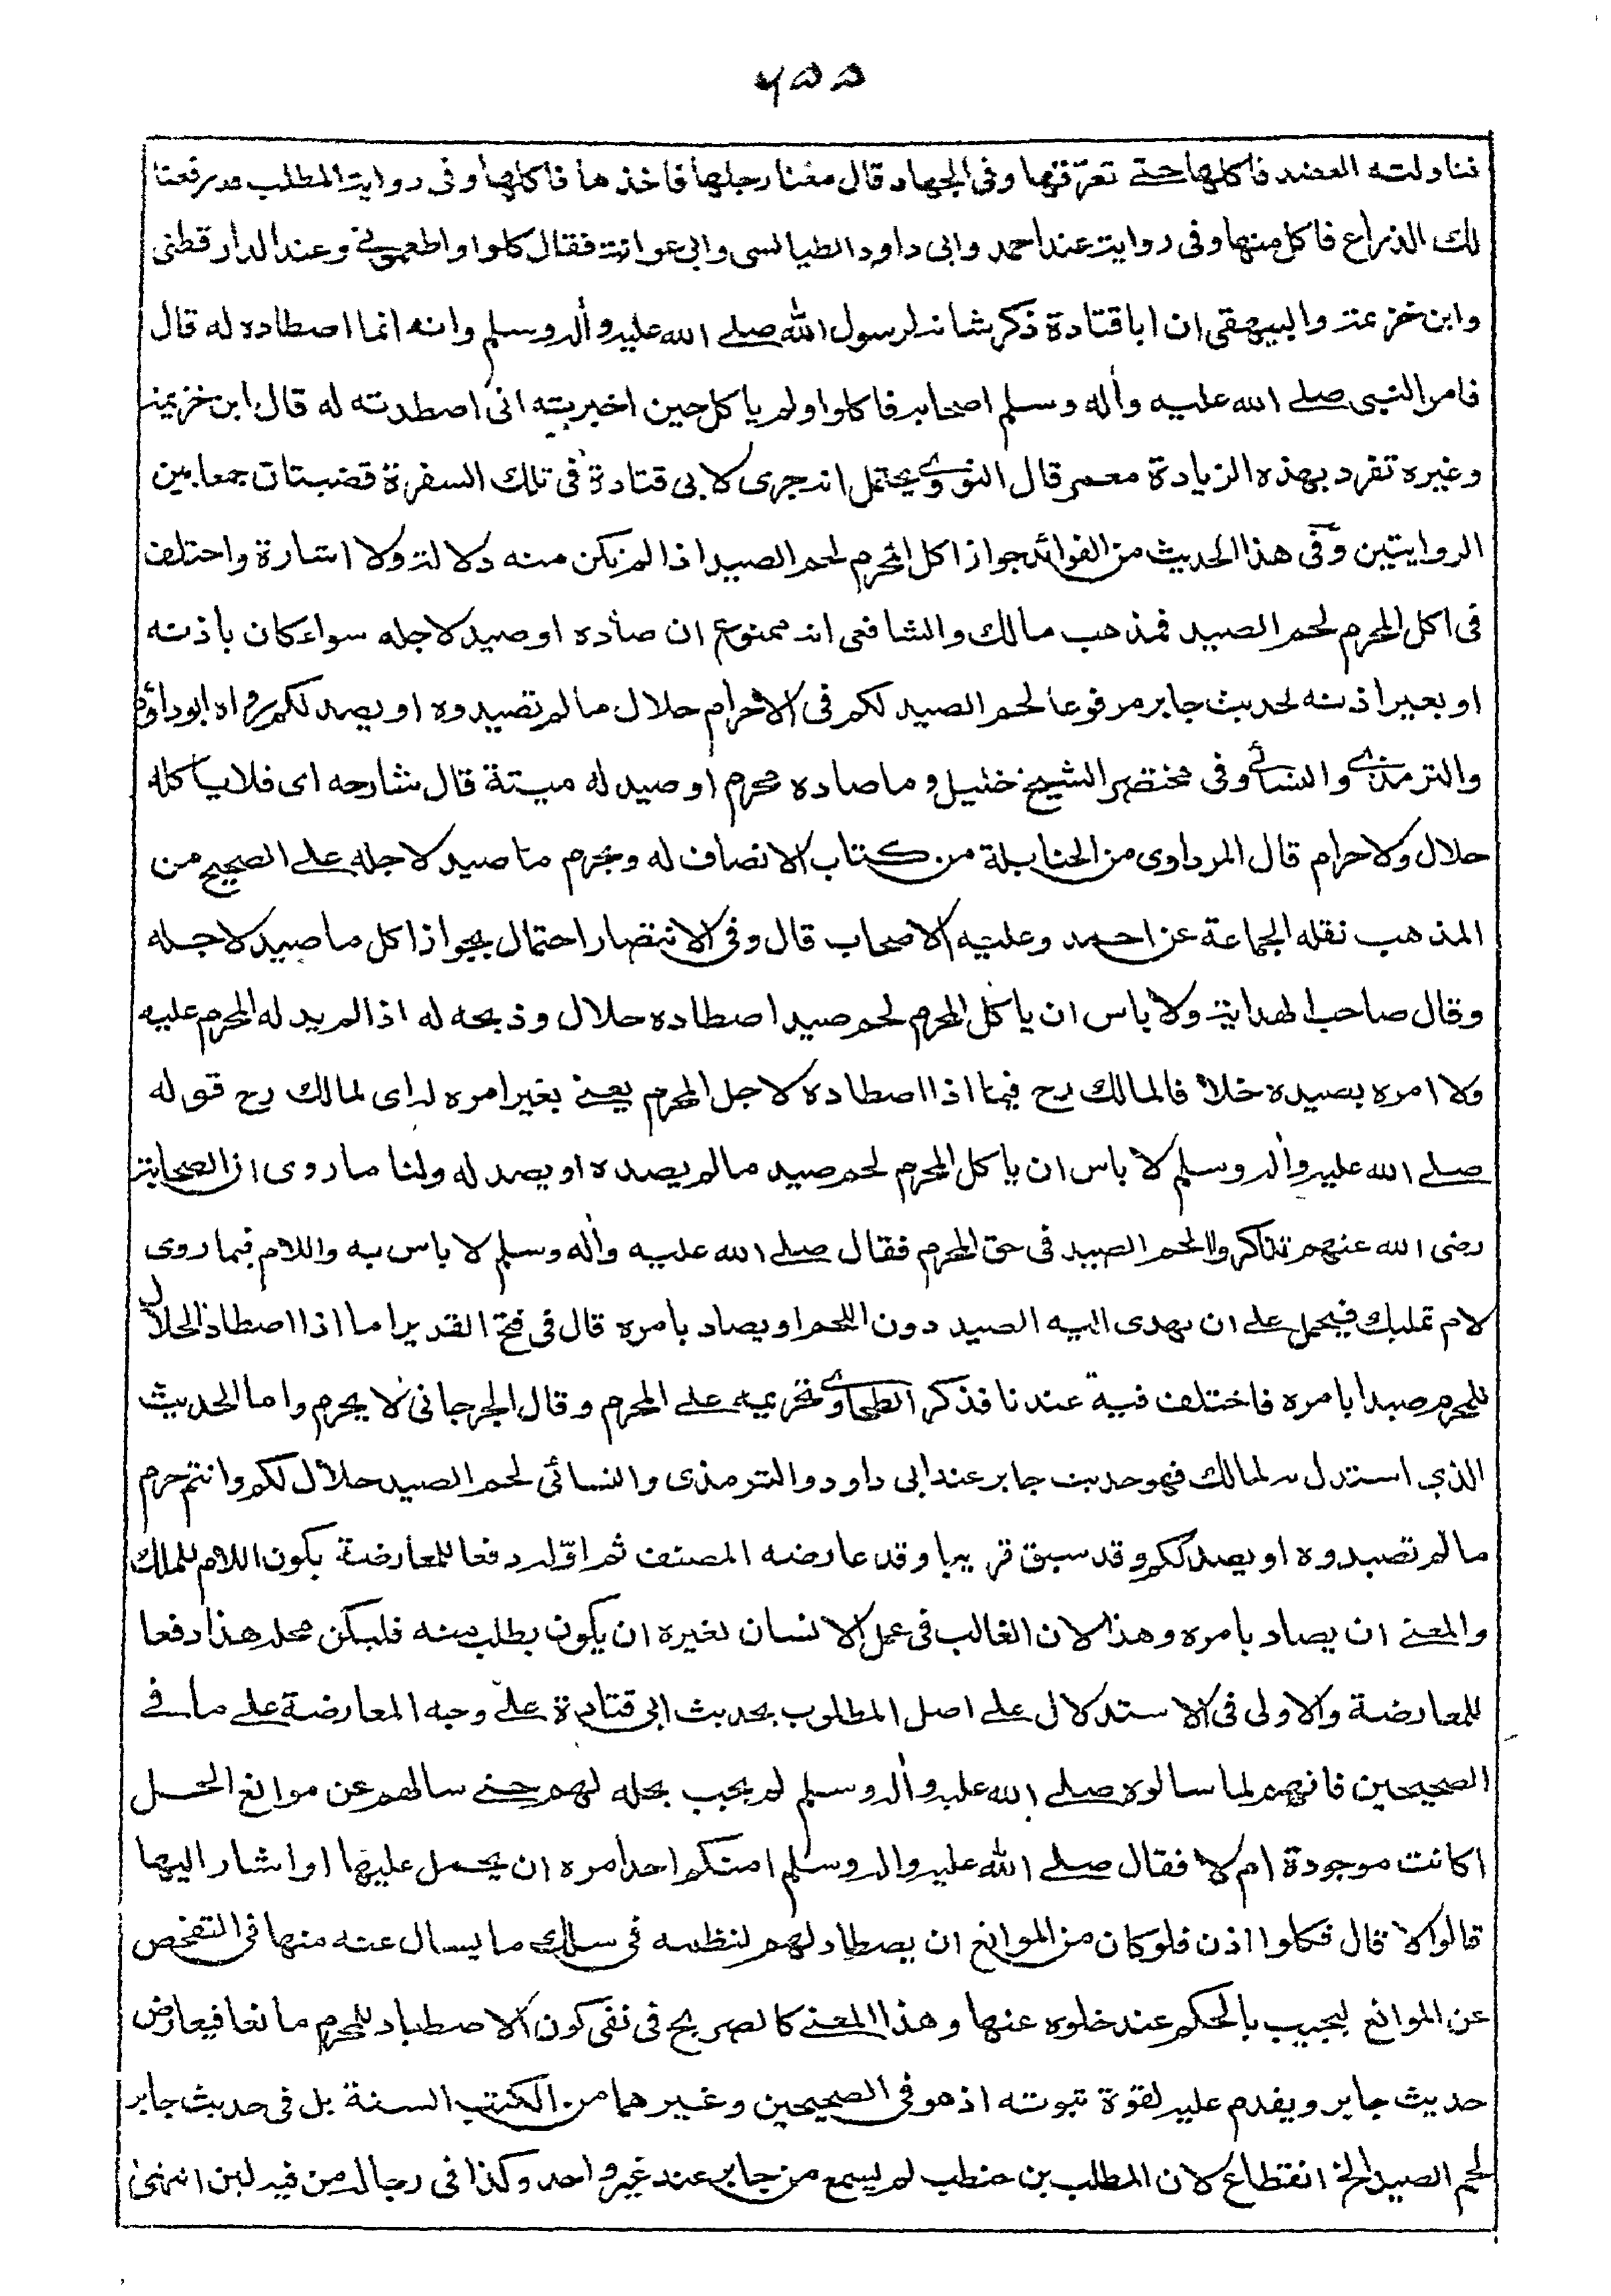 ۲۵۵
فناولته العضد فاكلها حتے تعرّقها وفى الجهاد قال معنا رجلها فاخذها فاكلها وفى رواية المطلب قد رفعنا
لك الذراع فاكل منها وفى رواية عند احمد وابى داود الطيالسى وابى عوانة فقال كلوا واطعمونے وعند الدارقطنى
وابن خزيمة والبيهقى ان ابا قتادة ذكر شانه لرسول الله صلے الله عليه وأله وسلم وانه انما اصطاده له قال
فامر النبى صلے الله عليه وأله وسلم اصحابه فاكلوا ولم ياكل حين اخبرته انى اصطدته له قال ابن خزيمة
وغيره تفرد بهذه الزيادة معمر قال النووے يحتمل انه جرى لابى قتادة فى تلك السفرة قضيتان جمعا بين
الروايتين وفى هذا الحديث من الفوائد جواز اكل المحرم لحم الصيد اذا لم تكن منه دلالة ولا اشارة واختلف
فى اكل المحرم لحم الصيد فمذهب مالك والشافعى انه ممنوع ان صاده او صيد لاجله سواء كان باذنه
او بغير اذنه لحديث جابر مرفوعا لحم الصيد لكم فى الاحرام حلال ما لم تصيدوه او يصد لكم رواه ابوداؤد
والترمذے والنسائے وفى مختصر الشيخ خليل وما صاده محرم او صيد له ميتة قال شارحه اى فلا ياكله
حلال ولا حرام قال المرداوى من الحنابلة من كتاب الانصاف له ويحرم ما صيد لاجله علے الصحيح من
المذهب نقله الجماعة عن احمد وعليه الاصحاب قال وفى الانتصار احتمال بجواز اكل ما صيد لاجله
وقال صاحب الهداية ولا باس ان ياكل المحرم لحم صيد اصطاده حلال وذبحه له اذا لم يدله المحرم عليه
ولا امره بصيده خلافا لمالك رح فيما اذا اصطاده لاجل المحرم يعنے بغير امره له اى لمالك رح قوله
صلے الله عليه وأله وسلم لا باس ان ياكل المحرم لحم صيد ما لم يصده او يصد له ولنا ما روى ان الصحابة
رضى الله عنهم تذاكروا لحم الصيد فى حق المحرم فقال صلے الله عليه وأله وسلم لا باس به واللام فيما روى
لام تمليك فيحمل علے ان يهدى اليه الصيد دون اللحم او يصاد بامره قال فى فتح القدير اما اذا اصطاد الحلال
للمحرم صيدا بامره فاختلف فيه عندنا فذكر الطحاوے تحريمه علے المحرم وقال الجرجانى لا يحرم واما الحديث
الذي استدل به لمالك فهو حديث جابر عند ابى داود والترمذى والنسائى لحم الصيد حلال لكم وانتم حرم
ما لم تصيدوه او يصد لكم وقد سبق قريبا وقد عارضه المصنف ثم اوّله دفعا للمعارضة بكون اللام للملك
والمعنے ان يصاد بامره وهذا لان الغالب فى عمل الانسان لغيره ان يكون بطلب منه فليكن محله هذا دفعا
للمعارضة والاولى فى الاستدلال علے اصل المطلوب بحديث ابى قتادة علے وجه المعارضة علے ما فے
الصحيحين فانهم لما سالوه صلے الله عليه وأله وسلم لم يجب بحله لهم حتے سالهم عن موانع الحل
اكانت موجودة ام لا فقال صلے الله عليه واله وسلم امنكم احد امره ان يحمل عليها او اشار اليها
قالوا لا قال فكلوا اذن فلو كان من الموانع ان يصطاد لهم لنظمه فى سلك ما يسال عنه منها فى التفحص
عن الموانع ليجيب بالحكم عند خلوه عنها وهذا المعنے كالصريح فى نفى كون الاصطياد للمحرم مانعا فيعارض
حديث جابر ويقدم عليه لقوة ثبوته اذ هو فى الصحيحين وغيرهما من الكتب الستة بل فى حديث جابر
لحم الصيد الخ انقطاع لان المطلب بن حنطب لم يسمع من جابر عند غير واحد وكذا فى رجاله من فيه لين انتهىٰ